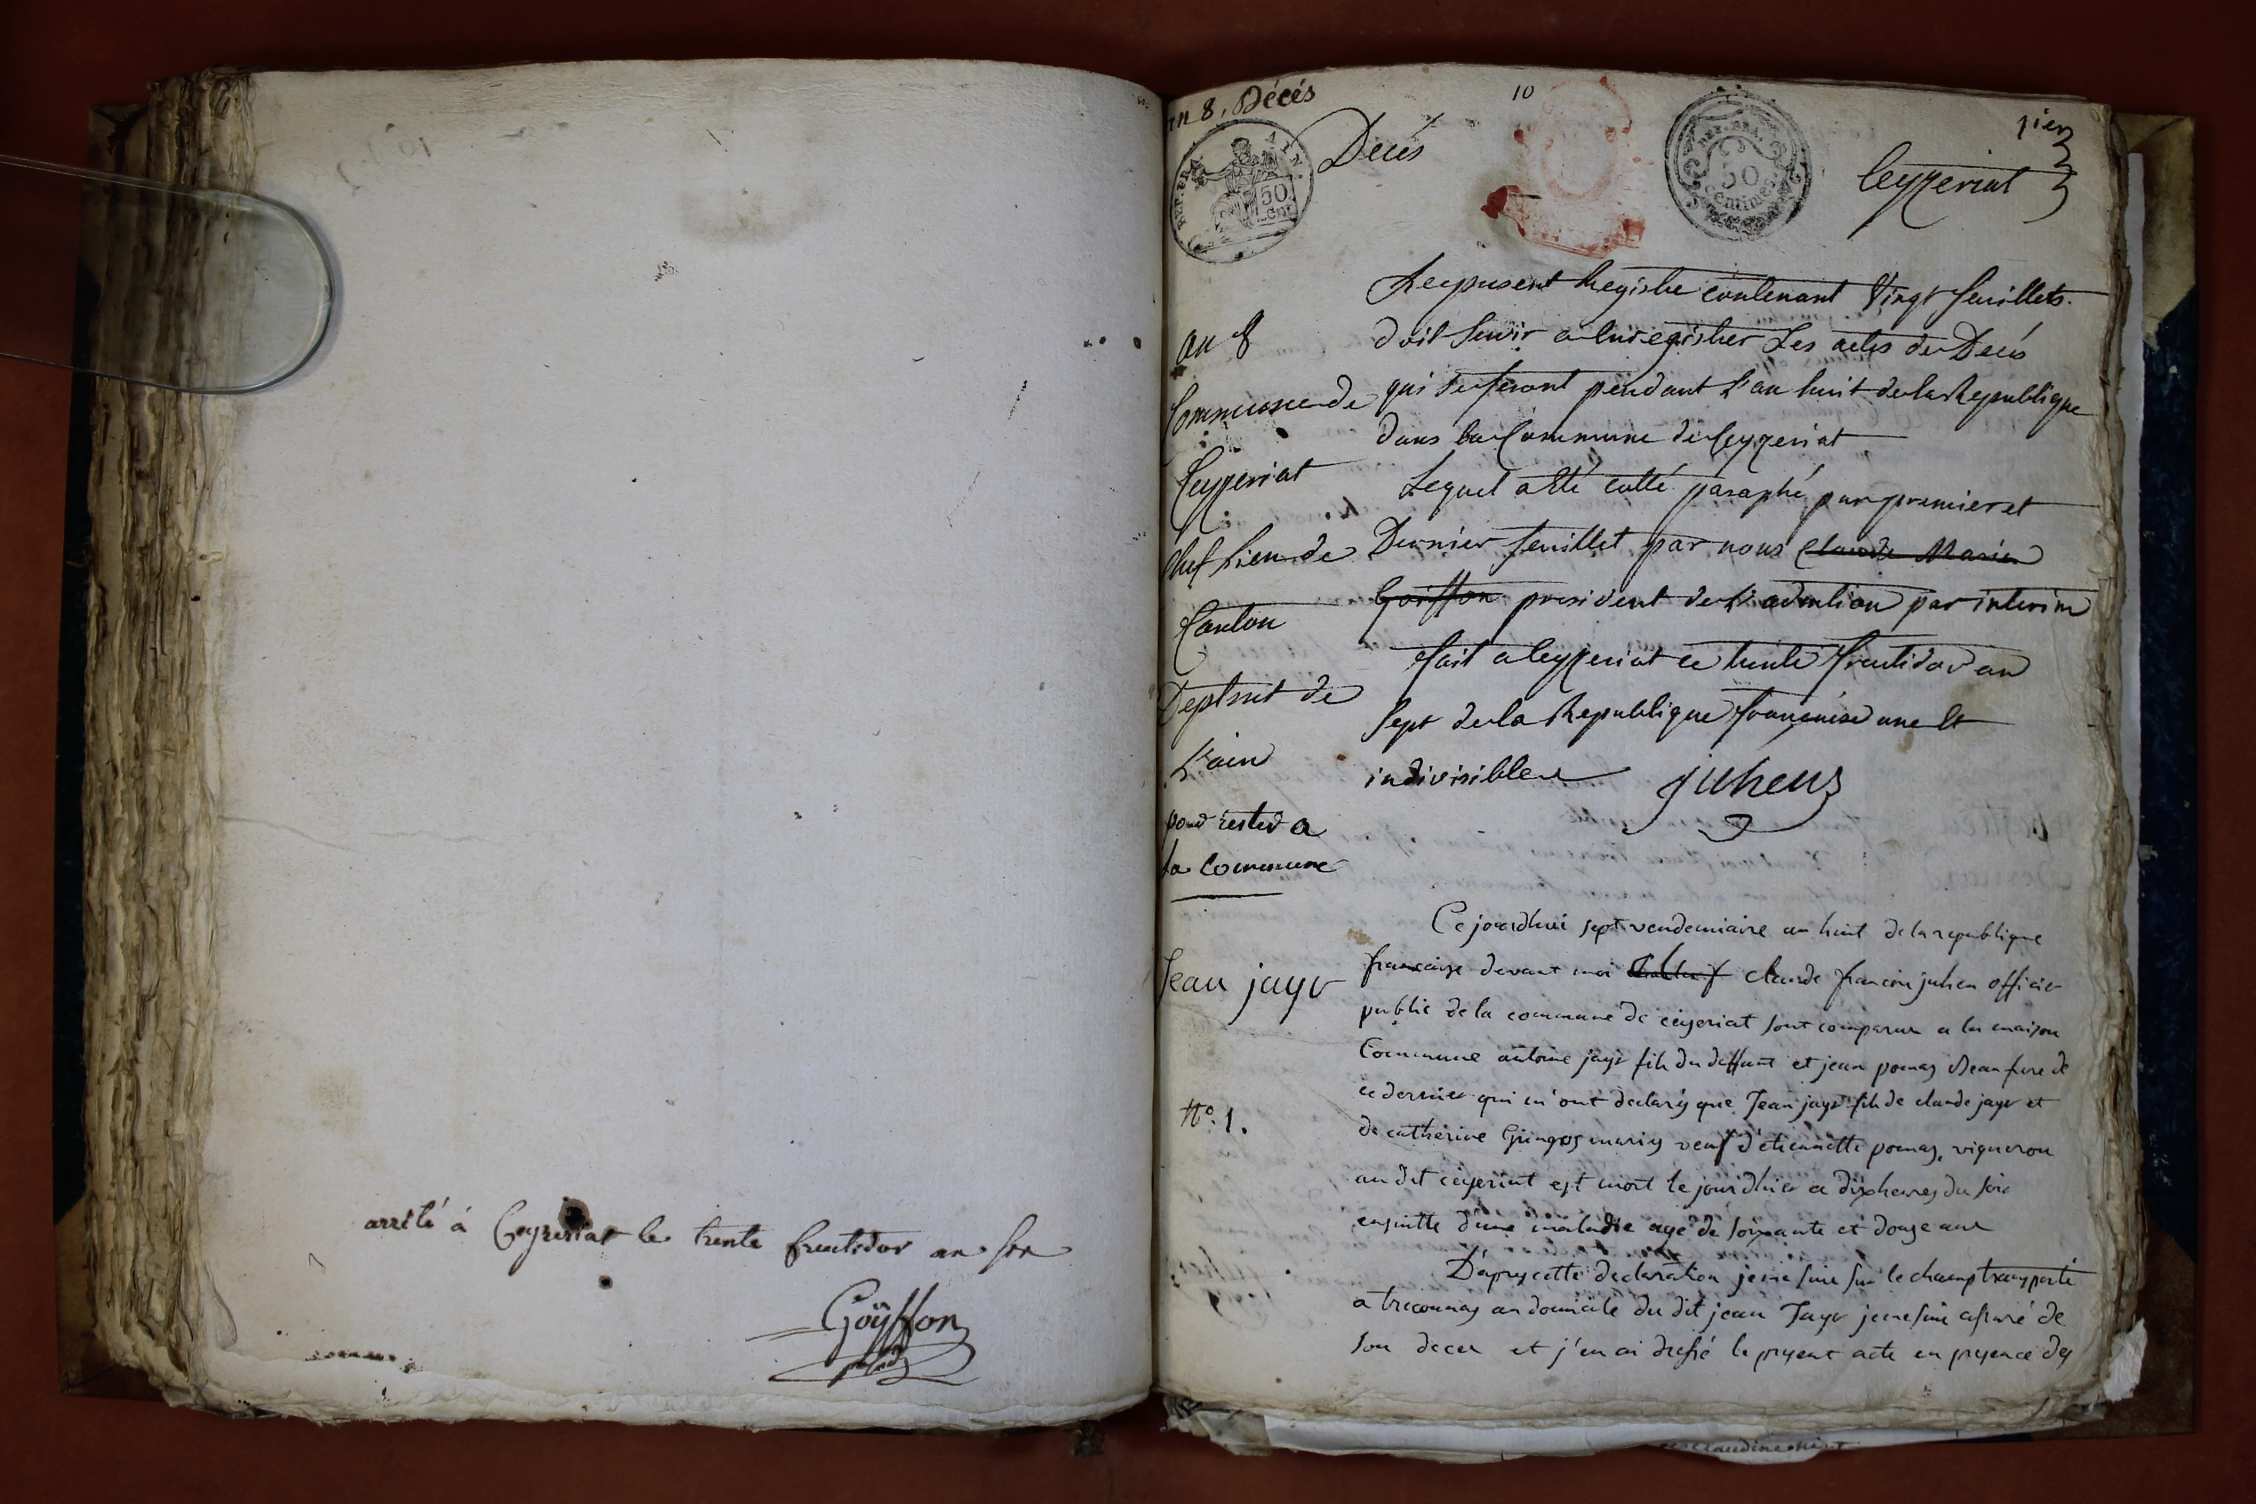 arrêté à Ceyzeriat le trente fructidor an
Goÿffon
an 8, Décés
10
1ier
Decés
REP. FRA.
AIN.
50
Cent
REP. FRA.
50
centimes
Ceyzeriat
an 8
Commune de
Ceyzeriat
chef lieu de
Canton
Deptmt de
L'ain
pour rester a
la Commune
Le present Registre contenant vingt feuillets
doit servir a Enregistrer Les actes de Decés
qui se feront pendant L'an huit de la Republique
dans la Commune de Ceyzeriat
Lequel a Eté cotté paraphé par premier et
Dernier feuillet par nous Claude Marie
Goiffon president de L'admtion par interim
fait a Ceyzeriat ce trente fructidor an
Sept de la Republique française une Et
indivisible
juhens
Jean jayr
N°. 1.
Ce jourdhui sept vendemiaire an huit de la republique
francaise devant moi claude francois juhen officier
public de la commune de ceyseriat sont comparus a la maison
Commune antoine jayr fils du deffunt et jean pomas Beaufrere de
ce dernier qui m'ont declarés que Jean jayr fils de claude jayr et
de catherine veuf d'etiennette pomas, vigneron
au dit ceyseriat est mort le jour dhier a dix heures du soir
ensuitte d'une maladie agé de soixante et douze ans
D'apres cette declaration je me suis sur le champ transporté
a treconnas au domicile du dit jean Jayr je me suis assuré de
son deces et j'en ai dressé le present acte en presence des